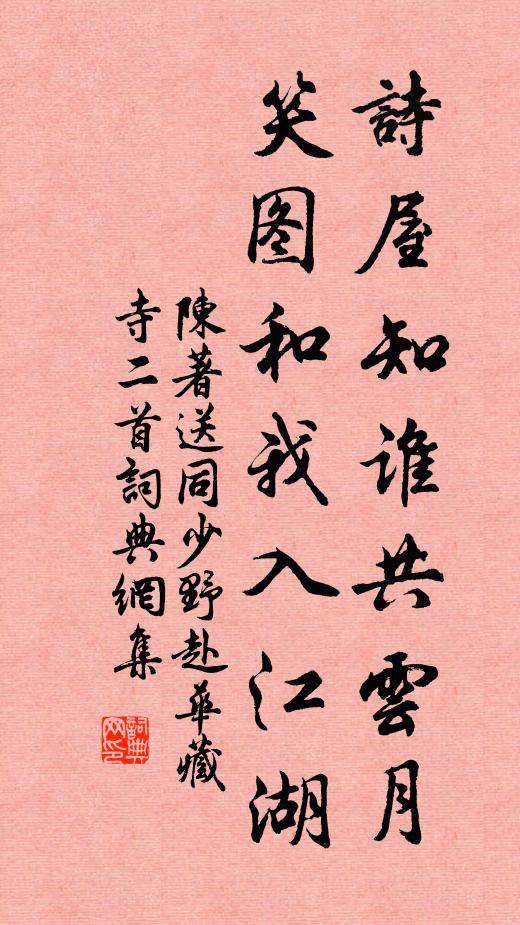 詩屋知谁共雲月
笑图和我入江湖
陳著送同少野赴華藏
寺二首詞典網集
詞典網印